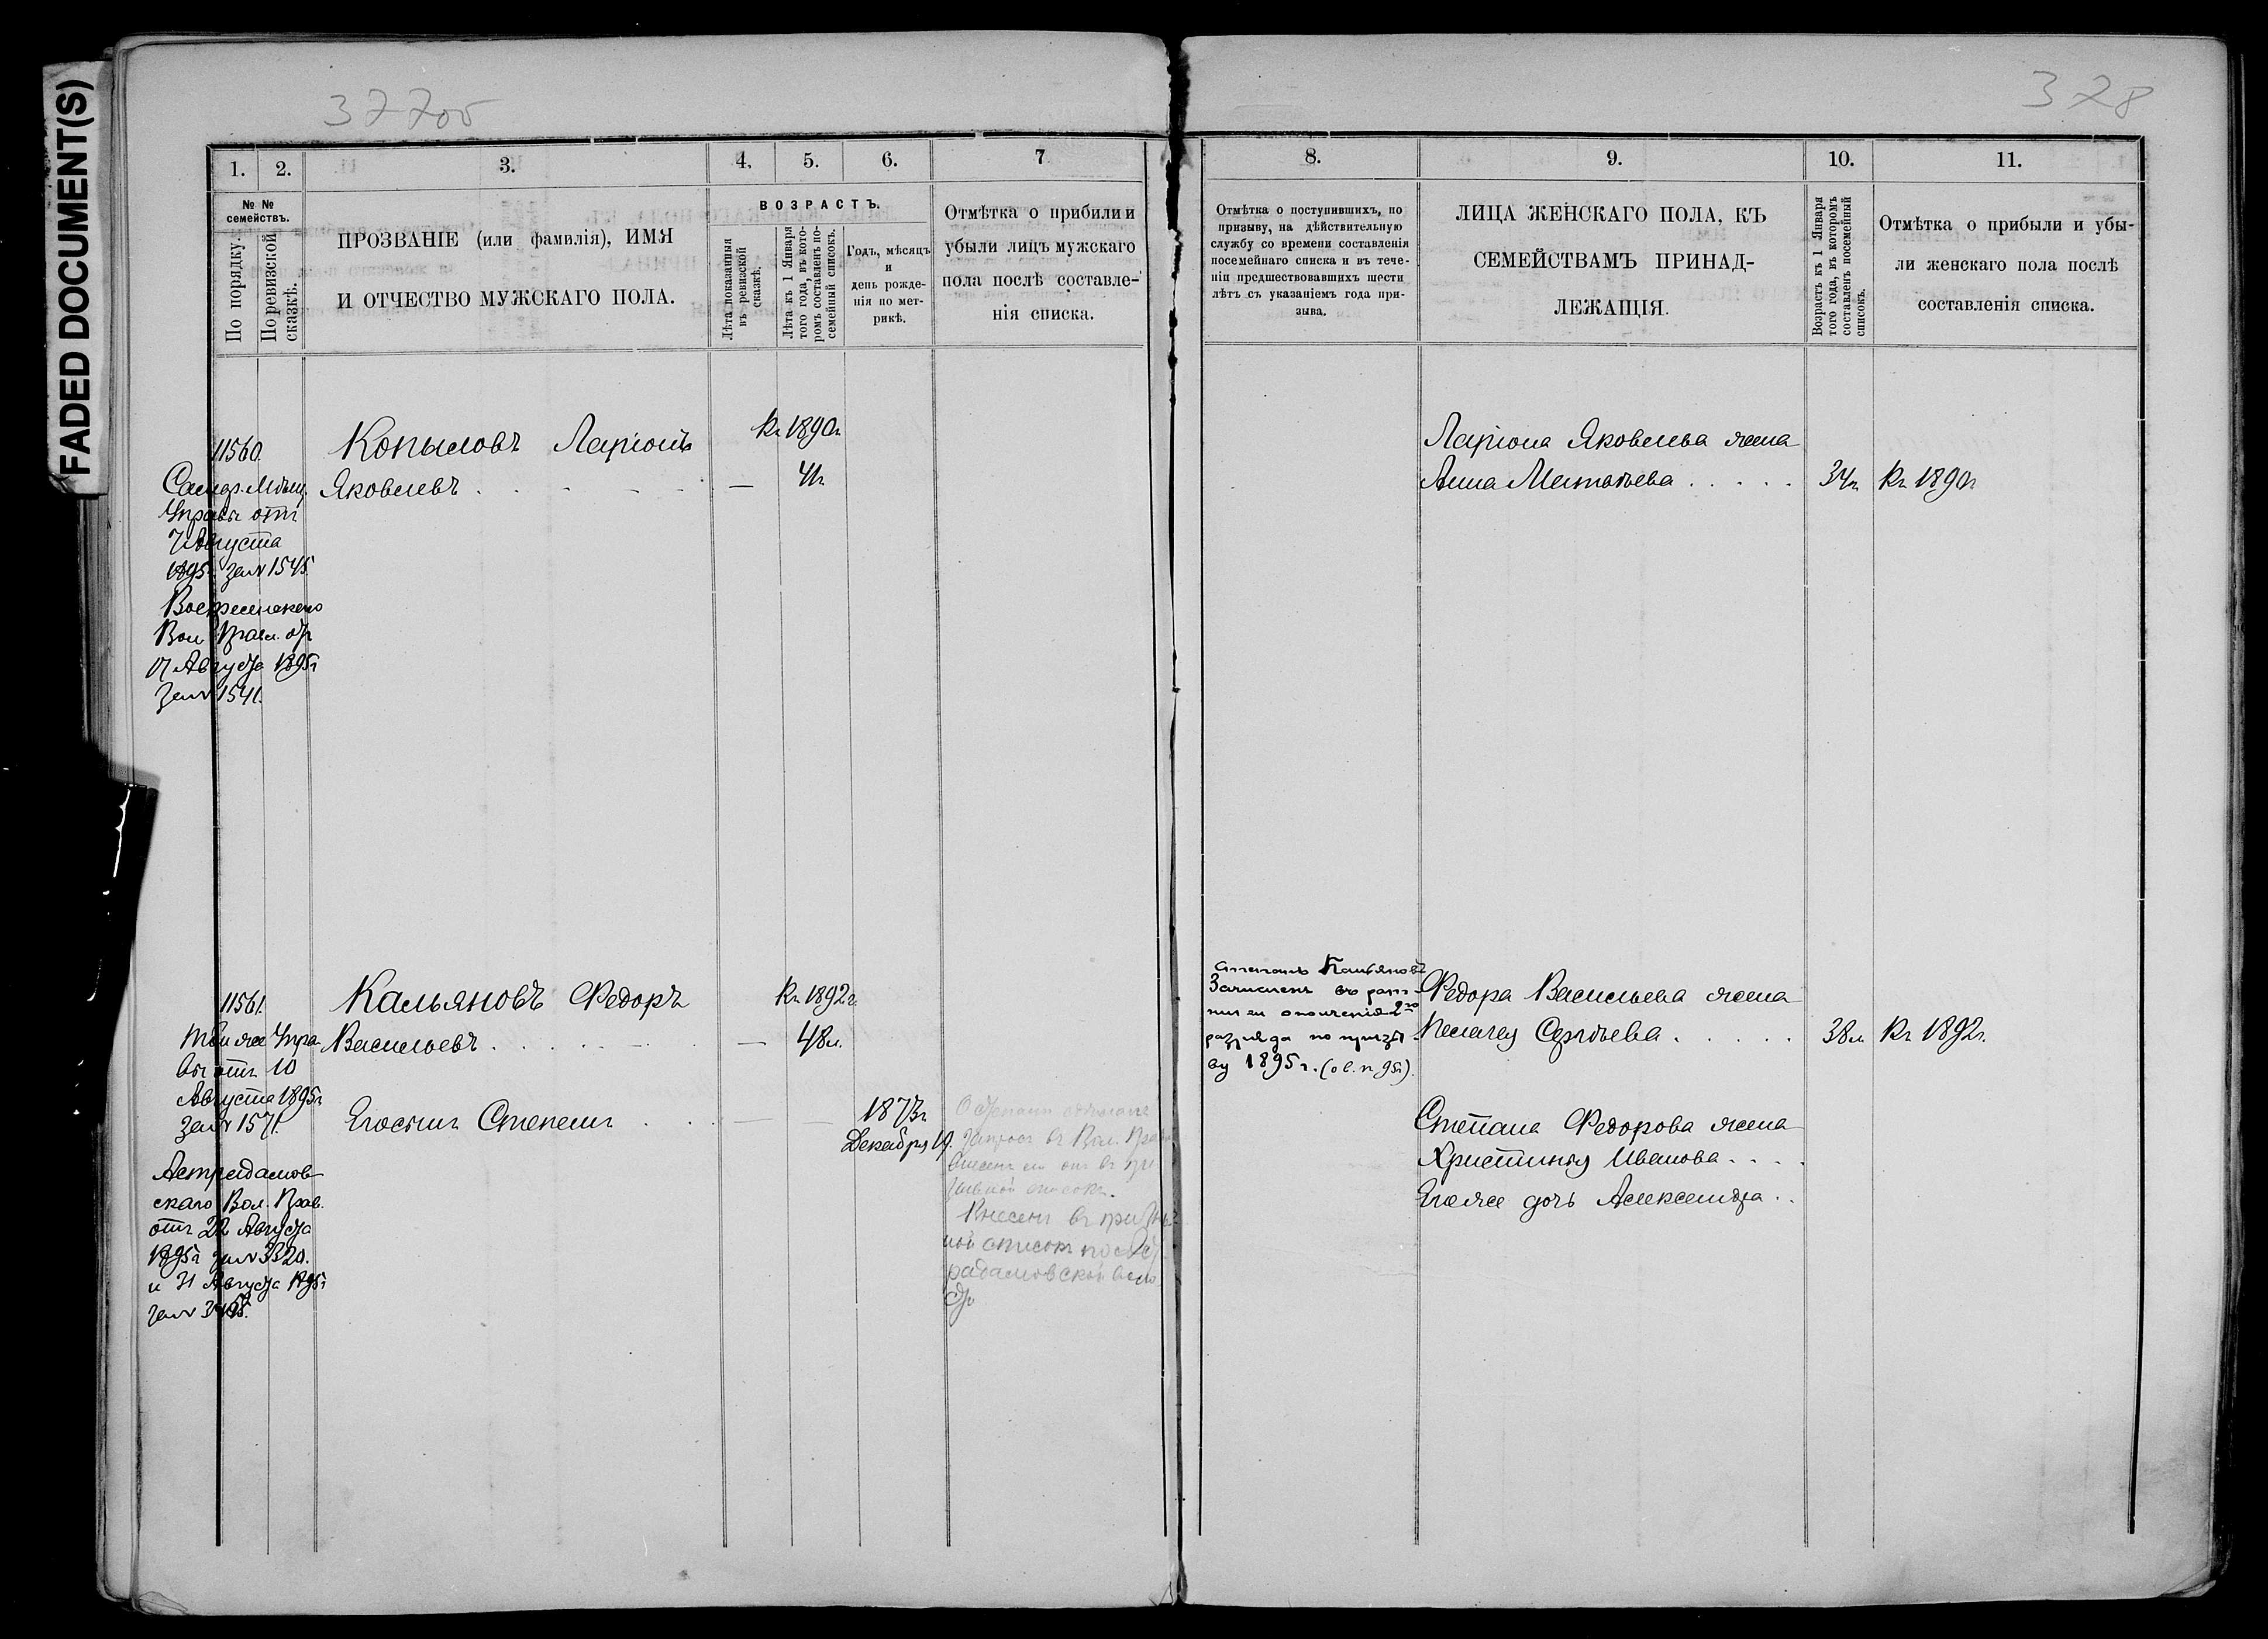 FADED DOCUMENT(S)
377об
328
1.
2.
3.
4.
5.
6.
7
№ №
семействъ.
По порядку.
По ревизской сказкѣ.
ПРОЗВАНІЕ (или фамилія), ИМЯ
И ОТЧЕСТВО МУЖСКАГО ПОЛА.
ВОЗРАСТЪ.
Лѣта показанныя
въ ревизской
сказкѣ.
Лѣта къ 1 Января
того года, въ кото-
ромъ составленъ по-
семейный списокъ.
Годъ, мѣсяцъ
и
день рожде-
нія по мет-
рикѣ.
Отмѣтка о прибыли и
убыли лицъ мужскаго
пола послѣ составле-
нія списка.
11560.
Самар. Мѣщ.
Управы отъ
7 Августа
1895г. за № 1545
Воскресенскаго
Вол. Правл. отъ
17 Августа 1895г
за № 1541.
Копыловъ Ларіонъ
Яковлевъ . . . . . —
Къ 1890г
41г
11561.
Той же Упра
вы отъ 10
Августа 1895г
за № 1571.
Астрадамов
скаго Вол. Прав.
отъ 22 Августа
1895г за № 3320.
и 31 Августа 1895г
за №
Кальяновъ Федоръ
Васильевъ . . . . . —
Къ 1892г.
48л.
Егосынъ Степанъ . . — —
1873г
Декабря 19.
О Степанѣ
запросъ въ Вол. Прав
внесенъ ли онъ въ при
зывной списокъ.
Внесенъ въ призыв
ной списокъ по Аст
радамовской воло
сти
8.
9.
10.
11.
Отмѣтка о поступившихъ, по
призыву, на дѣйствительную
службу со времени составленія
посемейнаго списка и въ тече-
ніи предшествовавшихъ шести
лѣтъ съ указаніемъ года при-
зыва.
ЛИЦА ЖЕНСКАГО ПОЛА, КЪ
СЕМЕЙСТВАМЪ ПРИНАД-
ЛЕЖАЩІЯ.
Возрастъ къ 1 Января
того года, въ которомъ
составленъ посемейный
списокъ.
Отмѣтка о прибыли и убы-
ли женскаго пола послѣ
составленія списка.
Ларіона Яковлева жена
Анна . . . . . 34г Къ 1890г
Степанъ Кальяновъ
Зачисленъ въ рат-
ники ополченія 2го
разряда по призы-
ву 1895г.
Федора Васильева жена
Пелагея Сергѣева . . . . . 38л Къ 1892г.
Степана Федорова жена
Христинья Иванова . . . .
Егоже дочь Александра . .